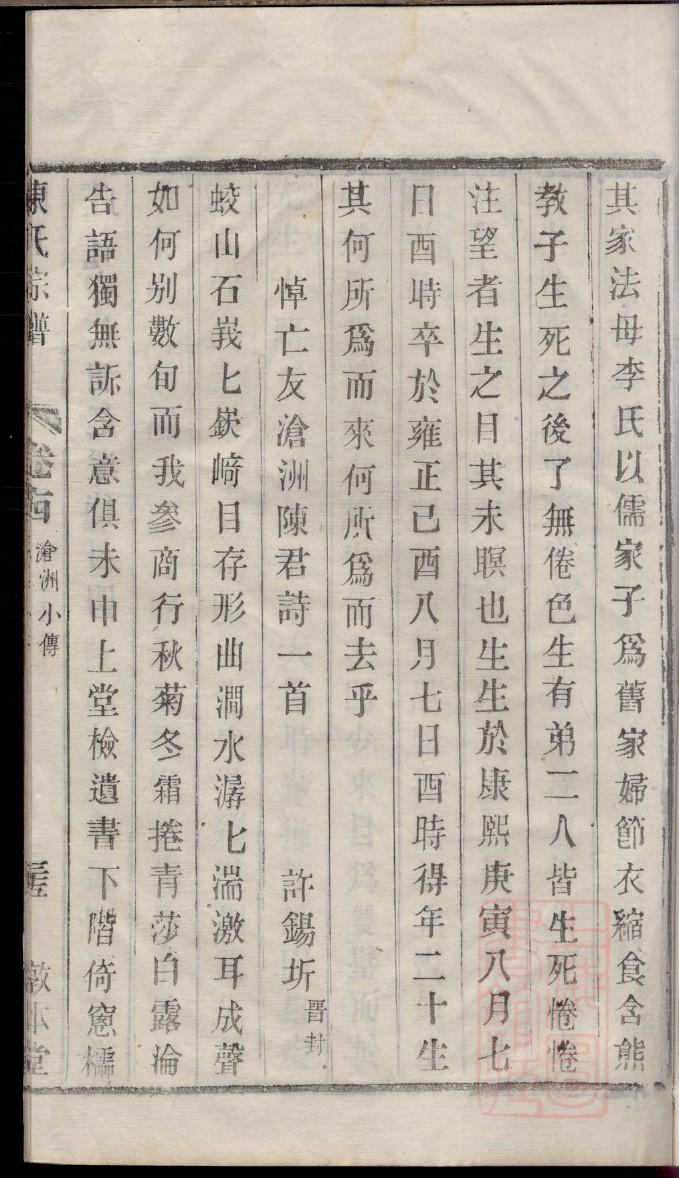 其家法母李氏以儒家子爲舊家婦節衣縮食含熊
教子生死之後了無倦色生有弟二人皆生死惓惓
注望者生之目其未瞑也生生於康熙庚寅八月七
日酉時卒於雍正己酉八月七日酉時得年二十生
其何所爲而來何所爲而去乎
悼亡友滄洲陳君詩一首 許錫圻 晋封
蛟山石峩匕嶔﨑目存形曲澗水潺匕湍激耳成聲
如何別數旬而我參商行秋菊冬霜捲青莎白露淪
告語獨無訴含意俱未申上堂檢遺書下階倚窓櫺
陳氏宗譜 卷十四 滄洲小傳 敬本堂